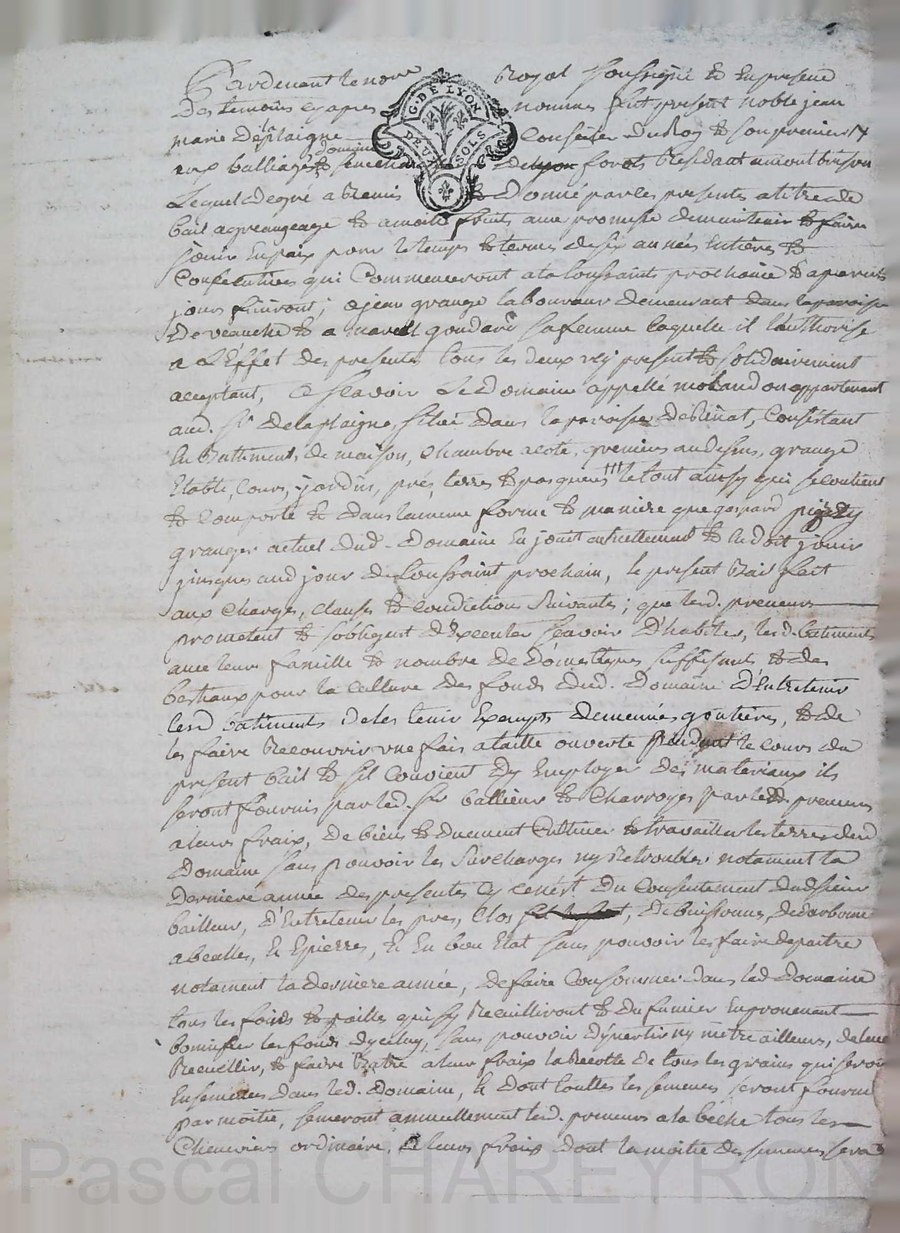 Pardevant le no.re Royal soussigné & En presence
G. DE LYON
DEUX SOLS
Des temoins cy apres nommes fut present noble jean
marie Delaplaigne Conseiller Du Roy & son premier
aux balliage domaine & senechaussée De forets Residant a montbrison
Lequel de gré a Remis & Donné par les presentes a titre de
bail a grangeage & a moitié fruits avec promesse de maintenir & faire
jouir En paix pour le temps & terme de six années Entieres &
Consecutives qui Commenceront a la toussaint prochaine & a pareils
jours finiront; a jean grange laboureur demeurant dans la paroisse
De veauche & a goudard sa femme laquelle il Authorise
a L'Effet des presentes tous les deux icy presents & solidairement
acceptant, a scavoir Le Domaine appellé appartenant
aud. Sr. Delaplaigne, situé dans la paroisse de Consistant
En Batiments, de maison, chambre a coté, greniers au dessus, grange
Etable, Cour, jardin, prés, terres & pasquiers le tout ainsy qui se contient
& Comporte & dans la meme forme & maniere que gaspard
granger actuel dud. Domaine En jouit actuellement & En doit jouir
jusques aud jour de toussaint prochain, le present Bail fait
aux Charges, clauses & condictions suivantes; que lesd. preneurs
promettent & s'obligent d'Executer scavoir D'habiter, lesd. batiments
avec leur famille & nombre de Domestiques suffisants & des
bestiaux pour la Culture des fonds dud. Domaine D'Entretenir
lesd batiments de les tenir Exempts de menues goutieres, & de
les faire Recouvrir une fois a taille ouverte pendant le cours du
present bail & s'il Convient dy Employer des materiaux ils
seront fournis par led. Sr bailleur & Charroyes par lesd. preneurs
a leurs fraix, de bien & duement Cultiver & travailler les terres dud
Domaine sans pouvoir les surcharger ny Retroubler notament la
Derniere année des presentes sy ce n'est du Consentement dud sieur
bailleur, d'Entretenir les prés, Clos, de buissonns,
Epierres, & En bon Etat sans pouvoir les faire depaitre
notament la derniere année, de faire Consommer dans led. Domaine
tous les foins & pailles qui sy Recuilliront & du fumier En provenant
bonnifier les fonds dyceluy, sans pouvoir dy n'y metre ailleurs, de
Recuellir, & faire Batre a leur fraix la Recolte de tous les grains qui seront
Ensemences dans led. Domaine, & dont touttes les semences seront fournies
par moitié, semeront annuellement lesd. preneurs a la beche tous les
Cheneviers ordinaire, a leurs fraix dont la moitié des semences sera
Pascal CHAREYRON